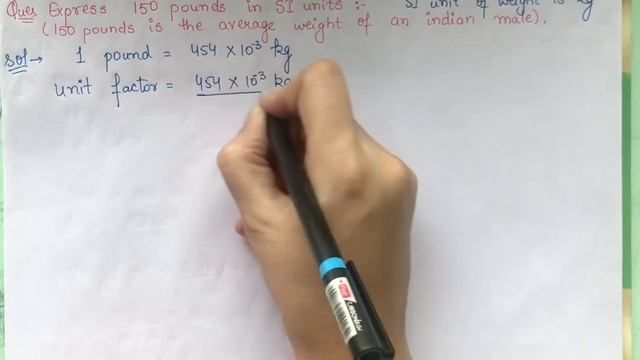 Ques Express 150 pounds in SI units :- SI unit of weight is kg
(150 pounds is the average weight of an indian male).
Sol → 1 pound = 454 × 10⁻³ kg
Unit factor = 454 × 10⁻³ kg